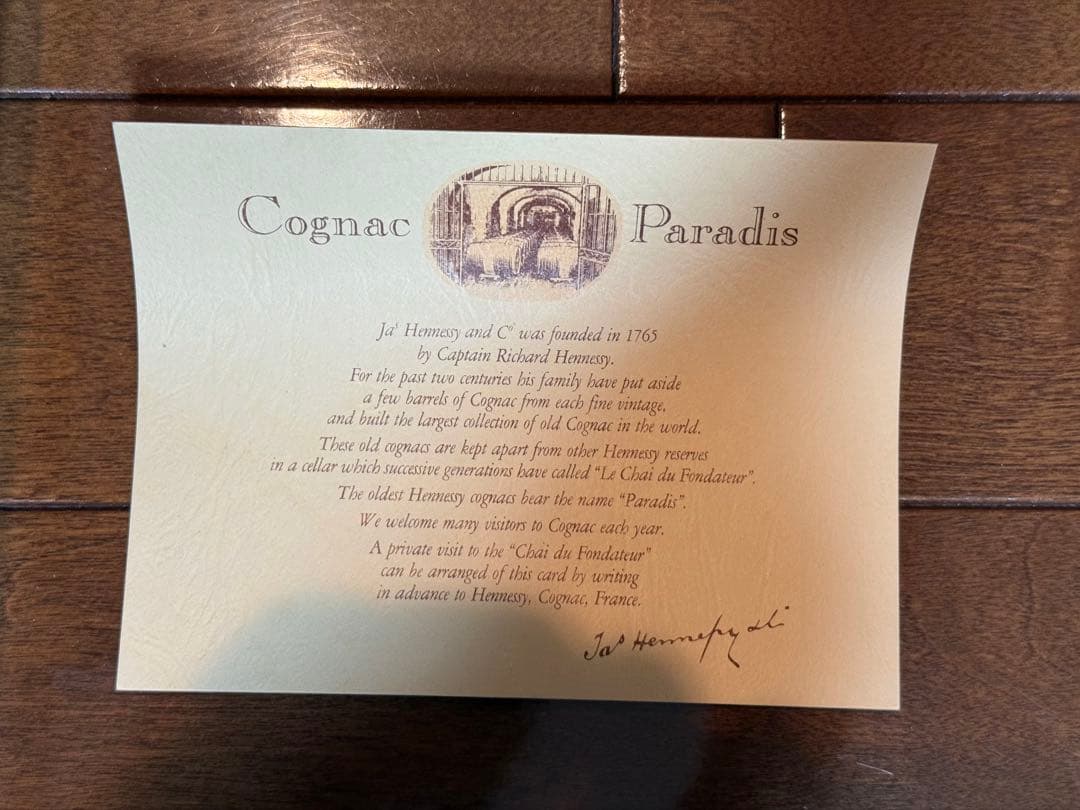 Cognac Paradis
Jaˢ Hennessy and Cº was founded in 1765
by Captain Richard Hennessy.
For the past two centuries his family have put aside
a few barrels of Cognac from each fine vintage,
and built the largest collection of old Cognac in the world.
These old cognacs are kept apart from other Hennessy reserves
in a cellar which successive generations have called “Le Chai du Fondateur”.
The oldest Hennessy cognacs bear the name “Paradis”.
We welcome many visitors to Cognac each year.
A private visit to the “Chai du Fondateur”
can be arranged of this card by writing
in advance to Hennessy, Cognac, France.
Jaˢ Hennessy